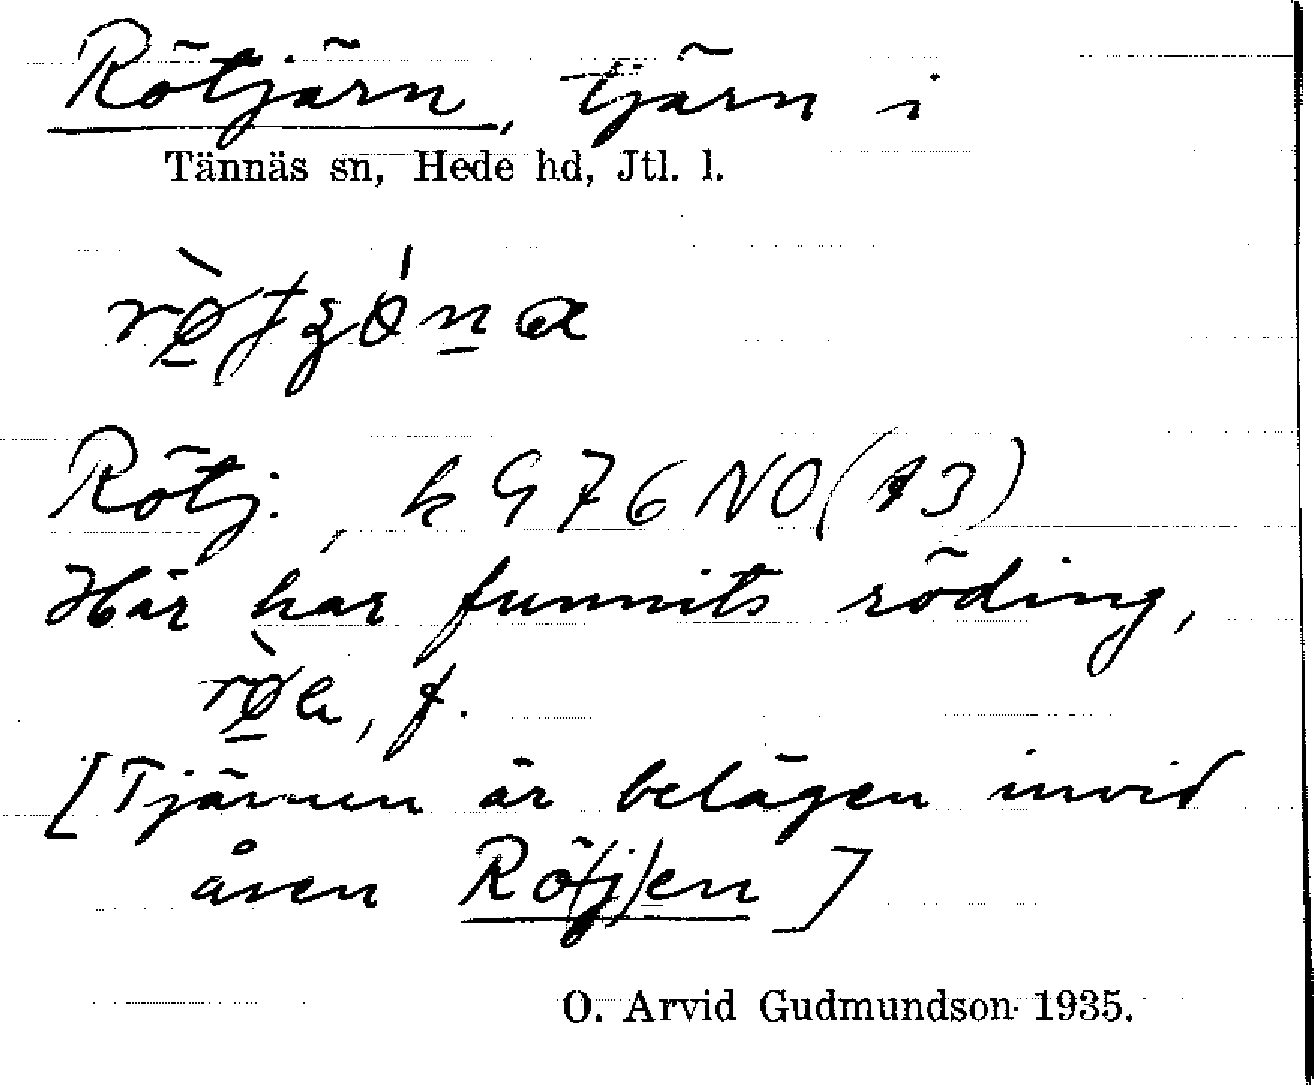 Rötjärn, tjärn i
Tännäs sn, Hede hd, Jtl. l.
Rötj., k G 76 NO (13)
Här har funnits röding,
f.
[Tjärnen är belägen invid
åsen Rö(j)en]
O. Arvid Gudmundson 1935.